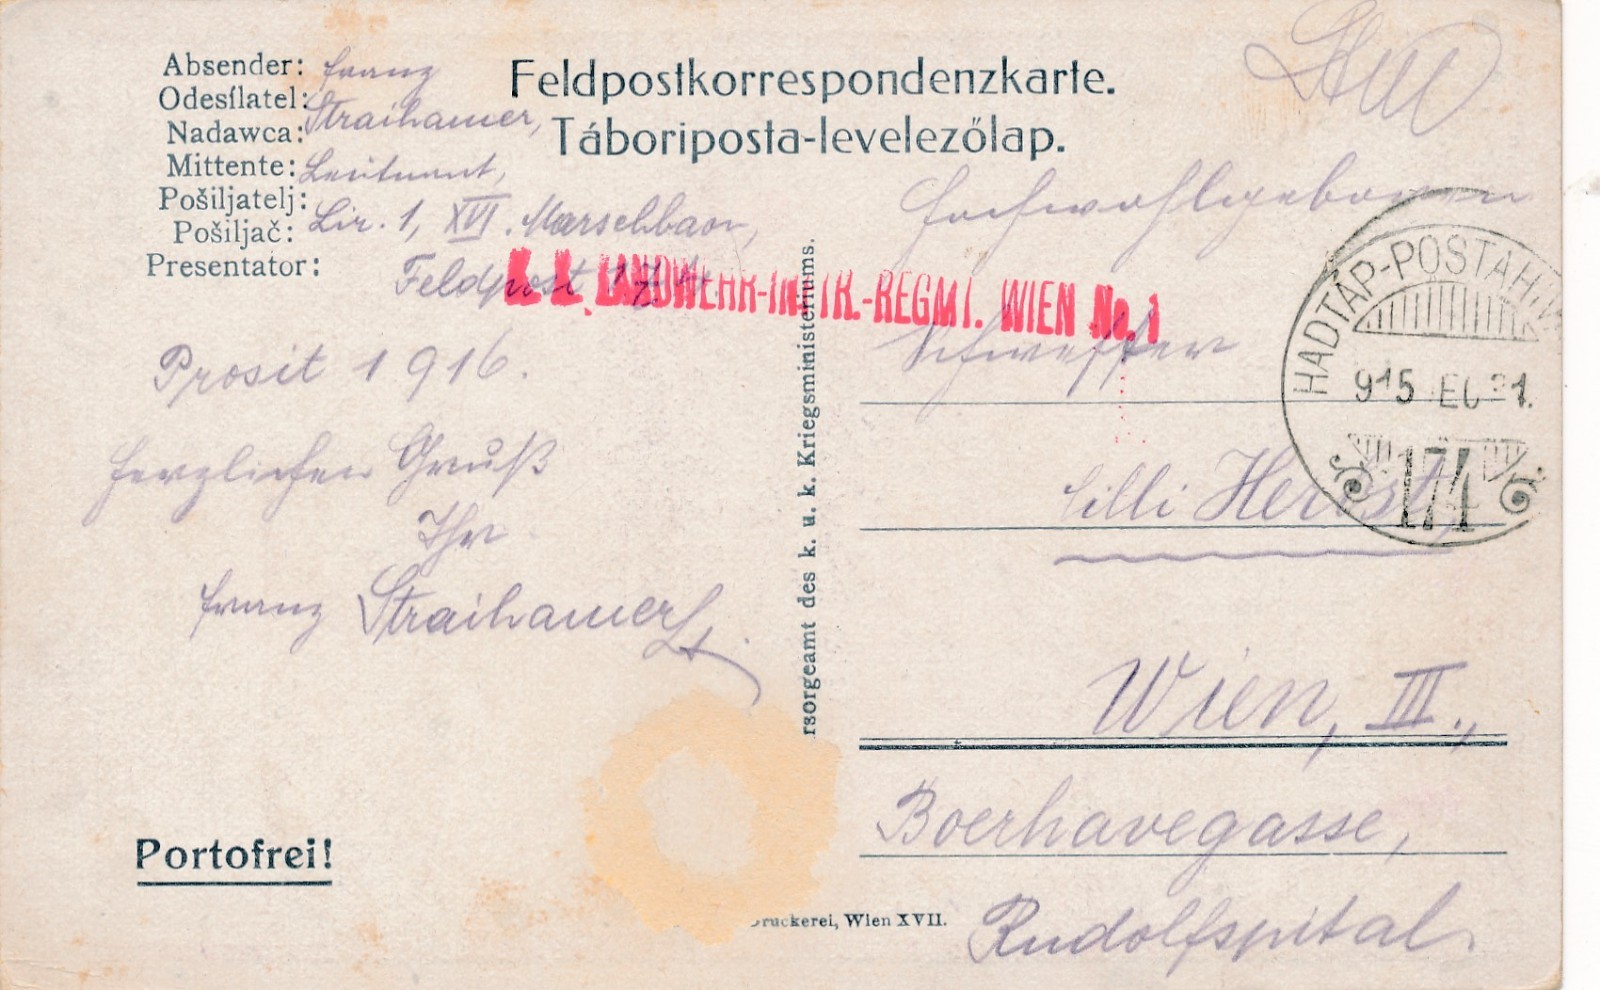 Absender: Franz
Odesílatel: Straihamer,
Nadawca:
Mittente: Leutnant,
Pošiljatelj: Lir. 1, XVI. Marschbaon,
Pošiljač:
Presentator: Feldpost
Feldpostkorrespondenzkarte.
Tábori posta-levelezőlap.
K. K. LANDWEHR-INFTR.-REGMT. WIEN No. 1
Prosit 1916.
Herzlichen Gruß
Ihr
Franz Straihamer Lt.
Portofrei!
rsorgeamt des k. u. k. Kriegsministeriums.
Druckerei, Wien XVII.
Hochwohlgeboren
Schwester
Cilli Herbst,
Wien, III.,
Boerhavegasse,
Rudolfspital.
HADTÁP-POSTAHIV
915 DEC 31.
174